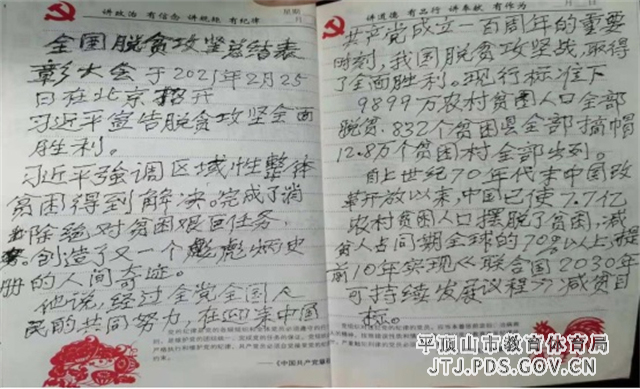 讲政治 有信念 讲规矩 有纪律
星期
月
全国脱贫攻坚总结表
彰大会于2021年2月25
日在北京招开
习近平宣告脱贫攻坚全面
胜利。
习近平强调区域性整体
贫困得到解决。完成了消
除绝对贫困艰巨任务
。创造了又一个彪彪炳史
册的人间奇迹。
他说,经过全党全国人
民的共同努力,在迎来中国
——《中国共产党章程
讲道德 有品行 讲奉献 有作为
月 日
共产党成立一百周年的重要
时刻,我国脱贫攻坚战,取得
了全面胜利。现行标准下
9899万农村贫困人口全部
脱贫.832个贫困县全部摘帽
12.8万个贫困村全部出列。
自上世纪70年代末中国改
革开放以来,中国已使7.7亿
农村贫困人口摆脱了贫困,减
贫人占同期全球的70%以上,提
前10年实现《联合国2030年
可持续发展议程》减贫目
标。
平顶山市教育体育局
JTJ.PDS.GOV.CN